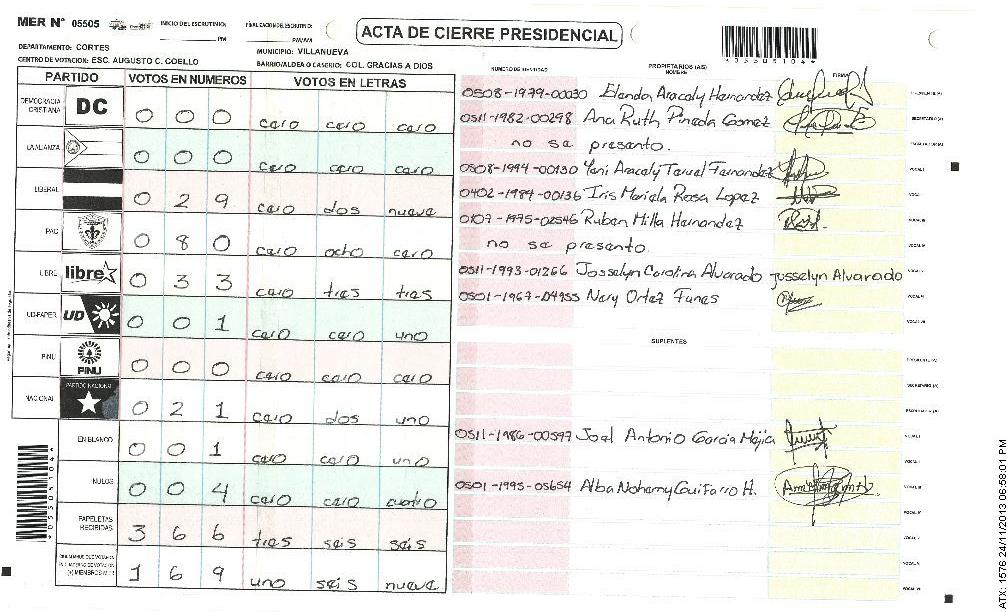 MER N° 05505 INICIO DEL ESCRUTINIO: PM FINALIZACION DE ESCRUTINIO: PM/AM
ACTA DE CIERRE PRESIDENCIAL
*05505104*
DEPARTAMENTO: CORTES MUNICIPIO: VILLANUEVA
CENTRO DE VOTACION: ESC. AUGUSTO C. COELLO BARRIO/ALDEA O CASERIO: COL. GRACIAS A DIOS
PARTIDO VOTOS EN NUMEROS VOTOS EN LETRAS
DEMOCRACIA CRISTIANA DC 0 0 0 cero cero cero
LA ALIANZA 0 0 0 cero cero cero
LIBERAL 0 2 9 cero dos nueve
PAC 0 8 0 cero ocho cero
LIBRE libre 0 3 3 cero tres tres
UD-FAPER UD 0 0 1 cero cero uno
PINU PINU 0 0 0 cero cero cero
NACIONAL PARTIDO NACIONAL 0 2 1 cero dos uno
EN BLANCO 0 0 1 cero cero uno
NULOS 0 0 4 cero cero cuatro
PAPELETAS RECIBIDAS 3 6 6 tres seis seis
1 6 9 uno seis nueve
*05505104*
NUMERO DE IDENTIDAD PROPIETARIOS (AS) NOMBRE FIRMA
0508-1979-00030 Elenda Aracely Hernandez PRESIDENTE (A)
0511-1982-00298 Ana Ruth Pineda Gomez SECRETARIO (A)
no se presento. ESCRUTADOR (A)
0508-1994-00130 Yeni Aracely Teruel Fernandez VOCAL I
0402-1984-00136 Iris Mariela Rosa Lopez VOCAL II
0107-1975-02546 Ruben Milla Hernandez VOCAL III
no se presento. VOCAL IV
0511-1993-01266 Josselyn Carolina Alvarado Josselyn Alvarado VOCAL V
0501-1967-04955 Nery Ortez Funes VOCAL VI
VOCAL VII
SUPLENTES
PRESIDENTE (A)
SECRETARIO (A)
ESCRUTADOR (A)
0511-1986-00597 Joel Antonio Garcia Mejia VOCAL I
VOCAL II
0501-1995-05654 Alba Nohemy Guifarro H. VOCAL III
VOCAL IV
VOCAL V
VOCAL VI
VOCAL VII
ATX: 1576 24/11/2013 06:58:01 PM